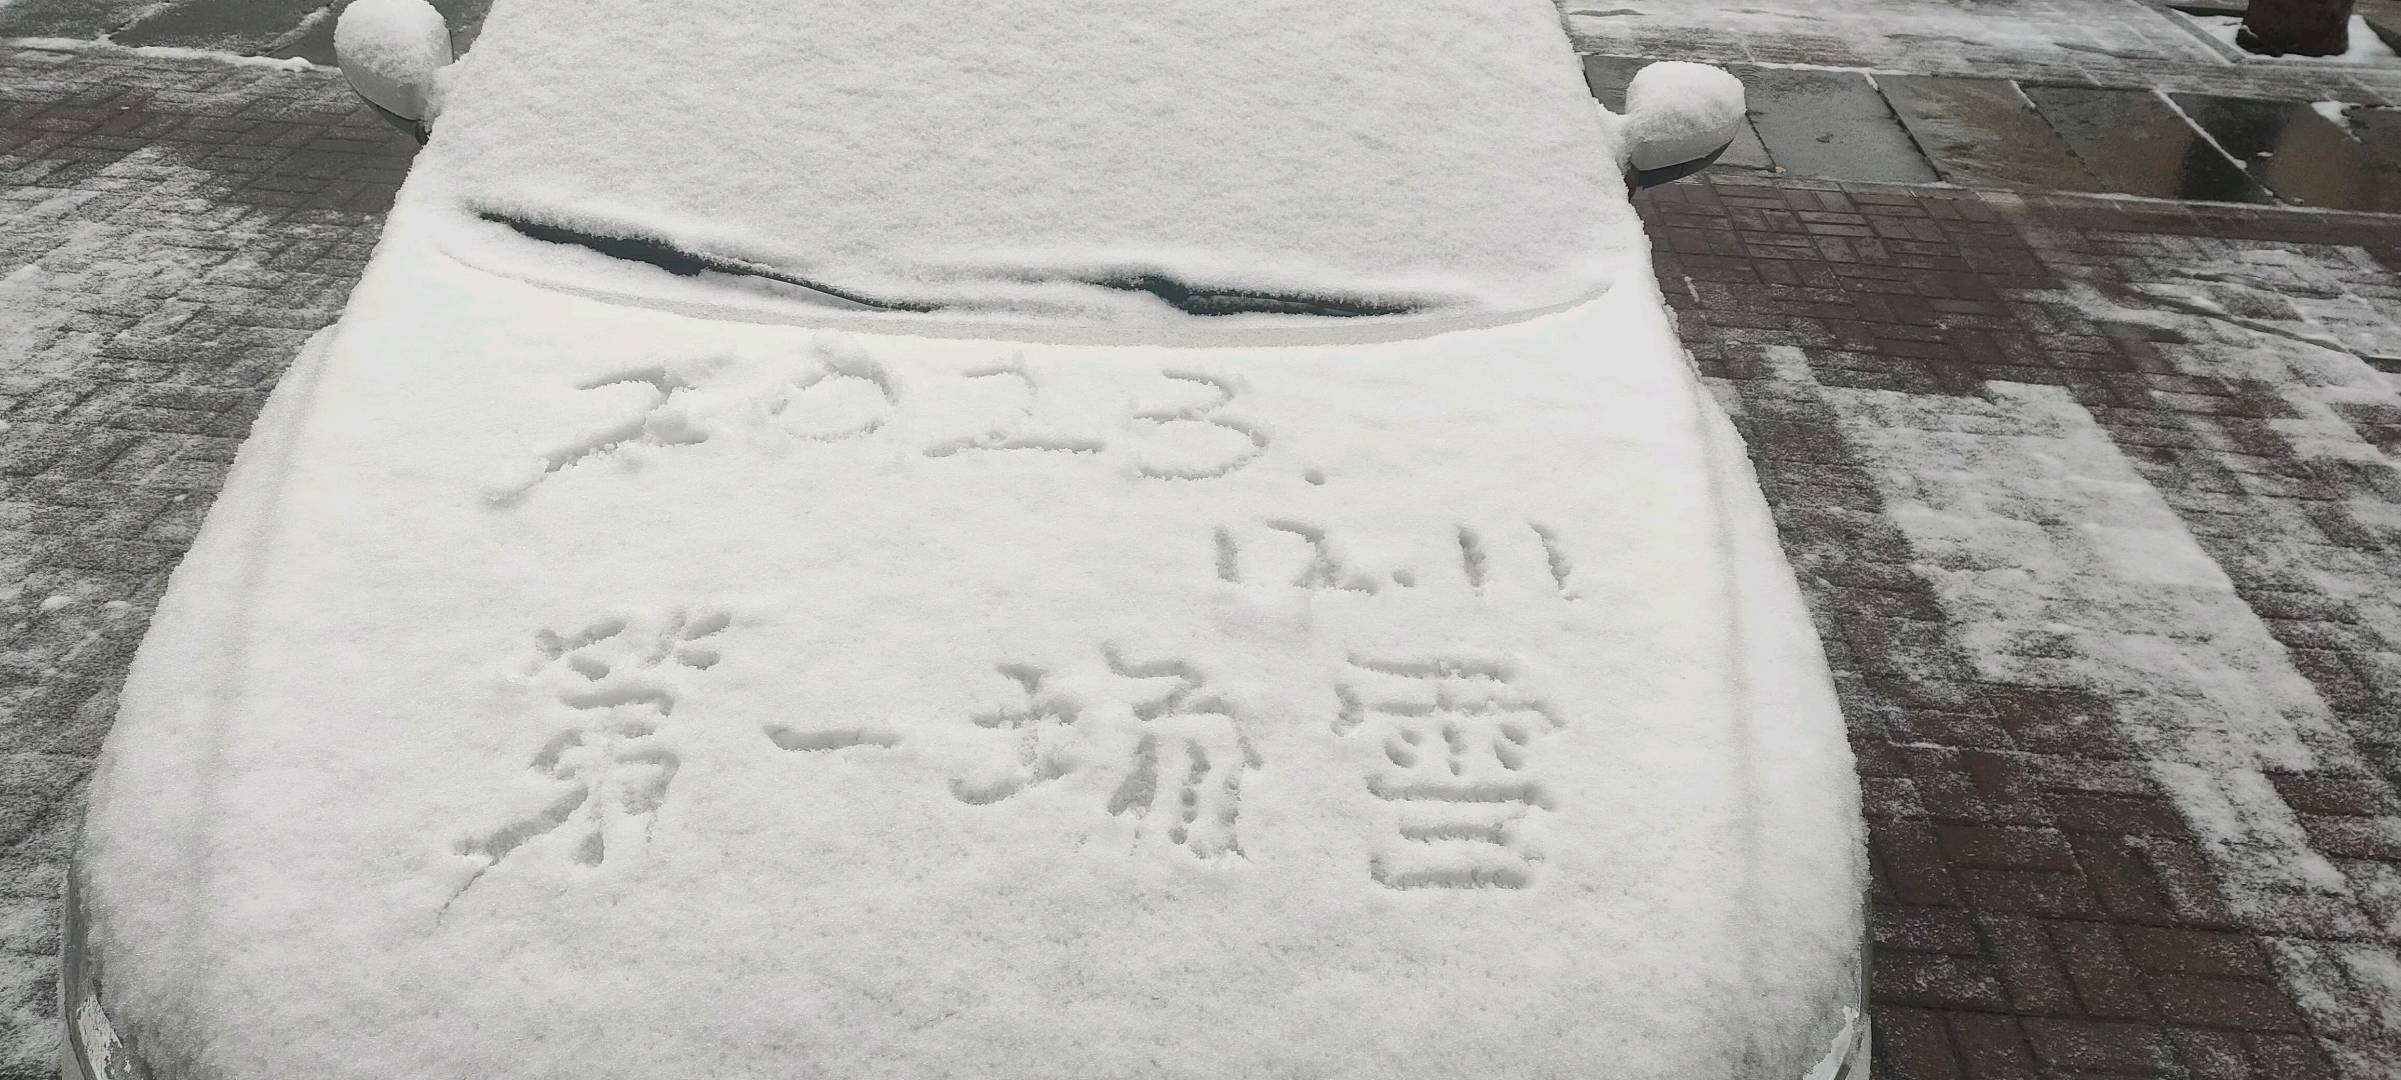 2023.
12.11
第一场雪